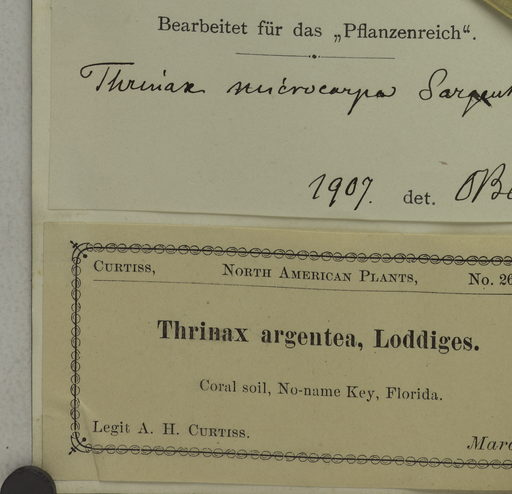 Bearbeitet für das „Pflanzenreich“.
Thrinax microcarpa Sargent
1907. det.
Curtiss, North American Plants, No. 26
Thrinax argentea, Loddiges.
Coral soil, No-name Key, Florida.
Legit A. H. Curtiss.